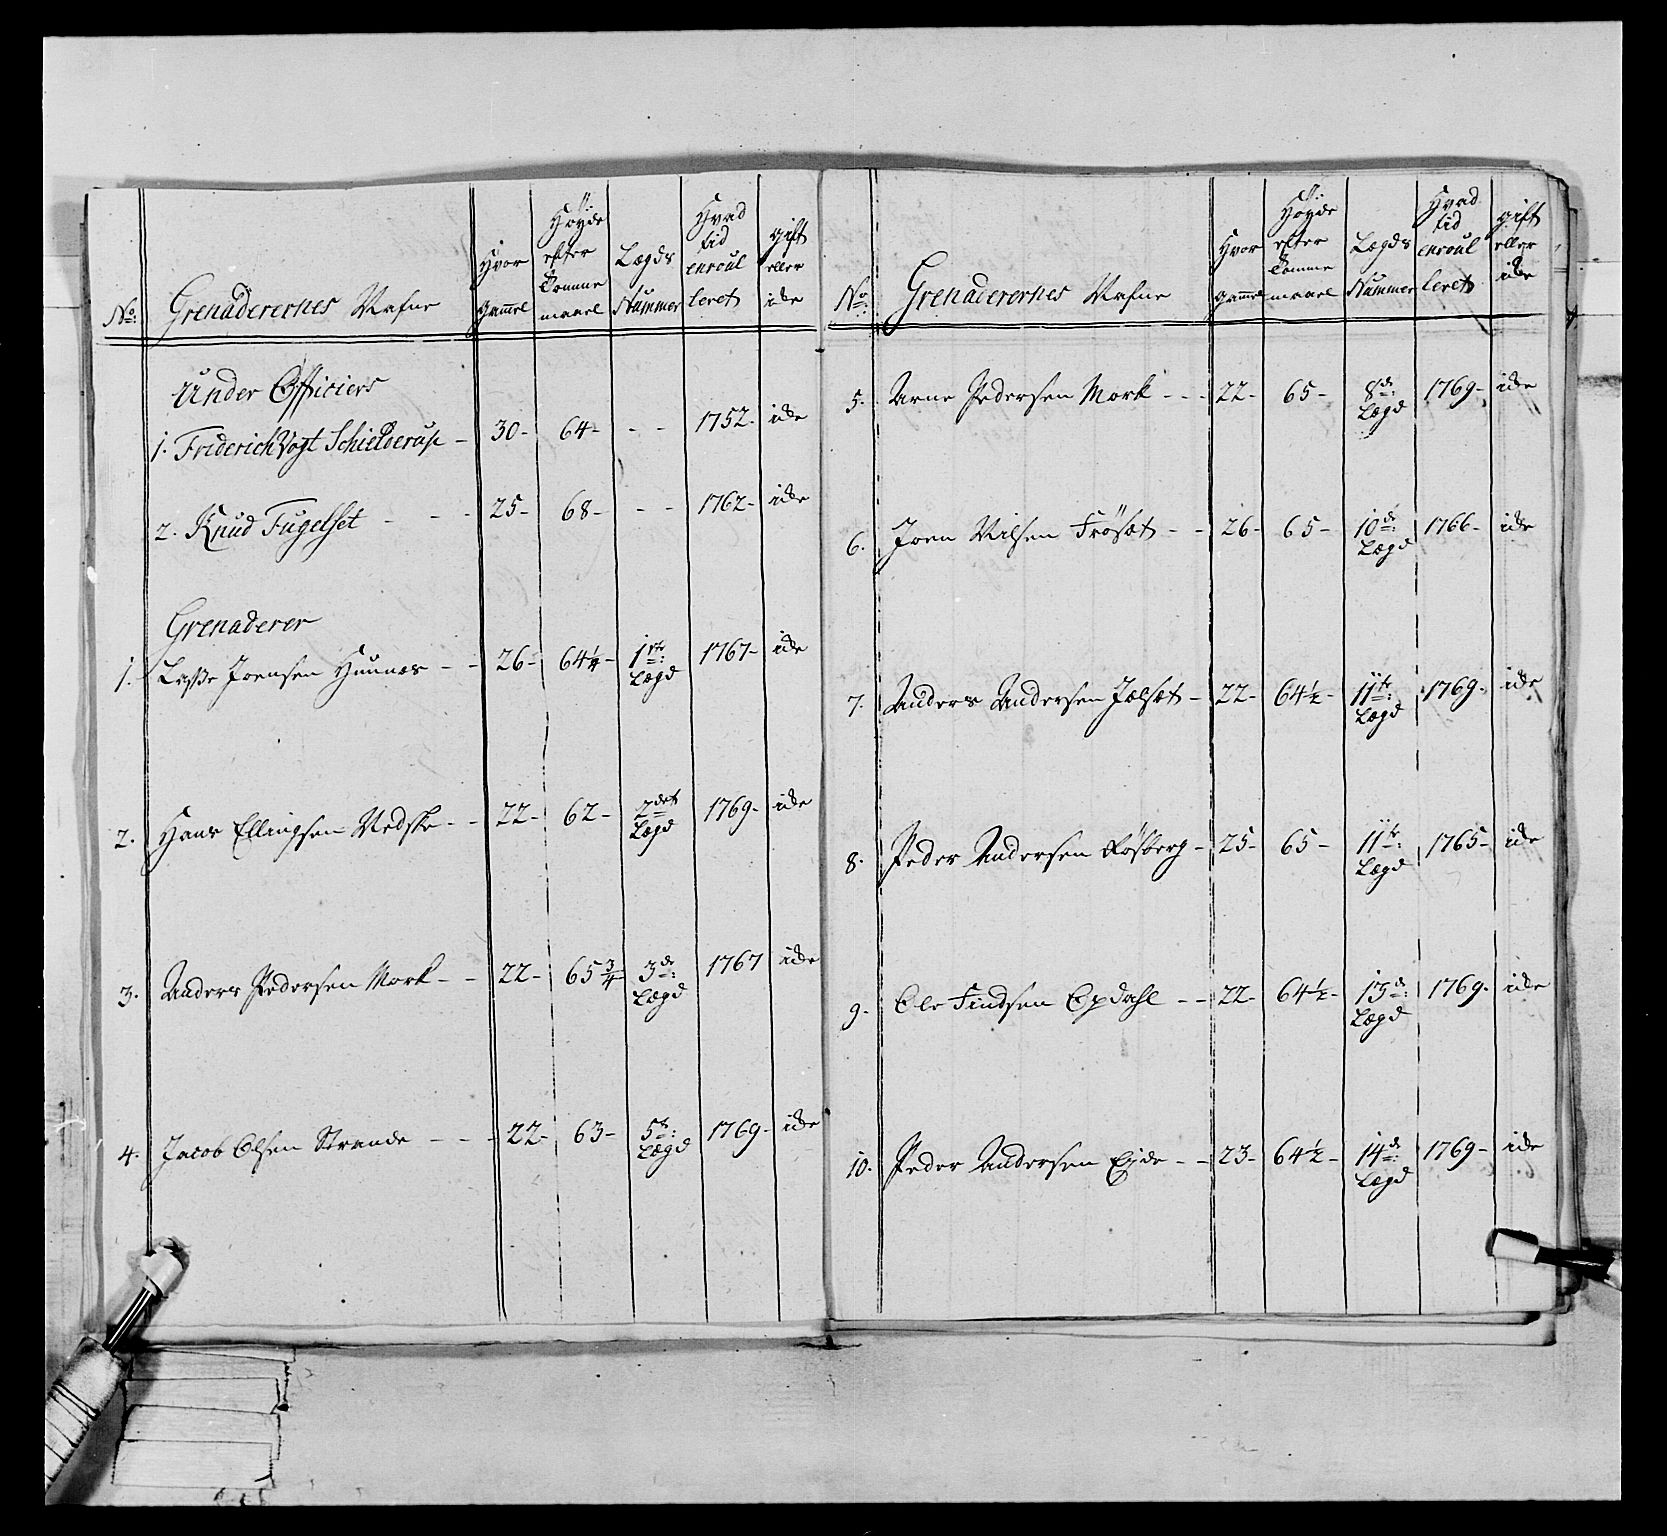 No: Grenaderernes Nafne Hvor gammel Høyde efter Tomme maael Lægds Nummer Hvad tid enroulleret gift eller icke
Under Officiers
1. Friderich Vogt Schielderup - 30- 64- - - 1752- icke
2. Knud Fugelset - - - 25- 68- - - 1762- icke
Grenaderer
1. Lasse Joensen Hunnes - - 26- 64¼- 1ste: Lægd 1767- icke
2. Hans Ellingsen Nedsse - - 22- 62- 2det Lægd 1769- icke
3. Anders Pedersen Mork - - 22- 65¾ 3de: Lægd 1767 icke
4. Jacob Olsen Strande - - - 22- 63- 5te: Lægd 1769- icke
No: Grenaderernes Nafne Hvor gammel Høyde efter Tomme maael Lægds Nummer Hvad tid enroulleret gift eller icke
5. Arne Pedersen Mork - - - 22- 65- 8de: Lægd 1769- icke
6. Joen Nilsen Frösæt - - 26- 65- 10de: Lægd 1766- icke
7. Anders Andersen Jælsæt - 22- 64½- 11te: Lægd 1769- icke
8. Peder Andersen Røsberg - 25- 65- 11te: Lægd 1765- icke
9. Ole Findsen Opdahl - - 22- 64½- 13de: Lægd 1769- icke
10. Peder Andersen Eyde - - 23- 64½- 14de: Lægd 1769- icke